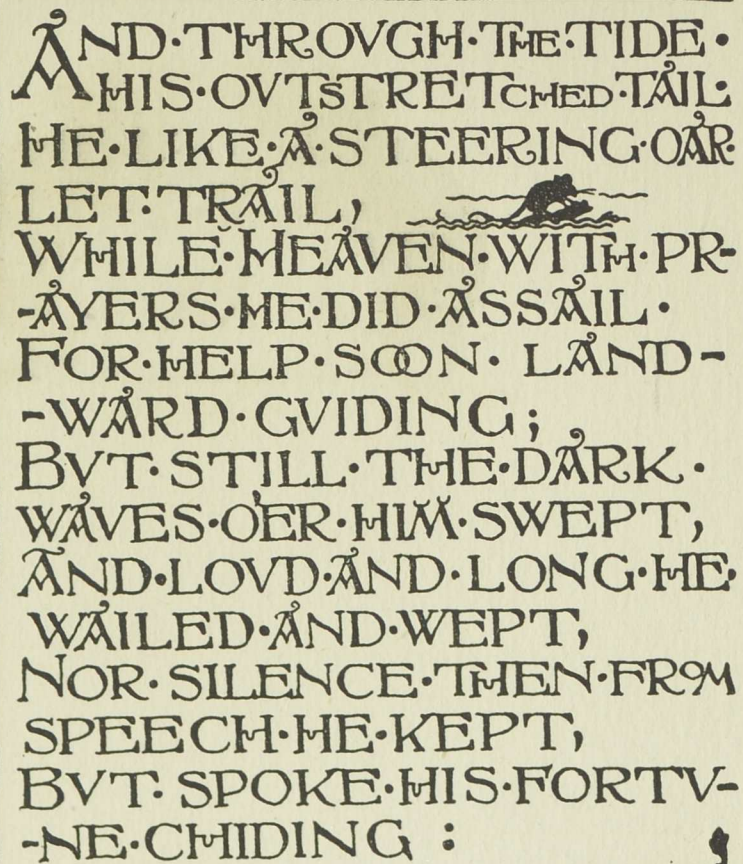 AND·THROVGH·THE·TIDE·
HIS·OVTSTRETCHED·TAIL·
HE·LIKE·A·STEERING·OAR·
LET·TRAIL,
WHILE·HEAVEN·WITH·PR-
-AYERS·HE·DID·ASSAIL·
FOR·HELP·SOON·LAND-
-WARD·GVIDING;
BVT·STILL·THE·DARK·
WAVES·O'ER·HIM·SWEPT,
AND·LOVD·AND·LONG·HE·
WAILED·AND·WEPT,
NOR·SILENCE·THEN·FROM
SPEECH·HE·KEPT,
BVT·SPOKE·HIS·FORTV-
-NE·CHIDING: